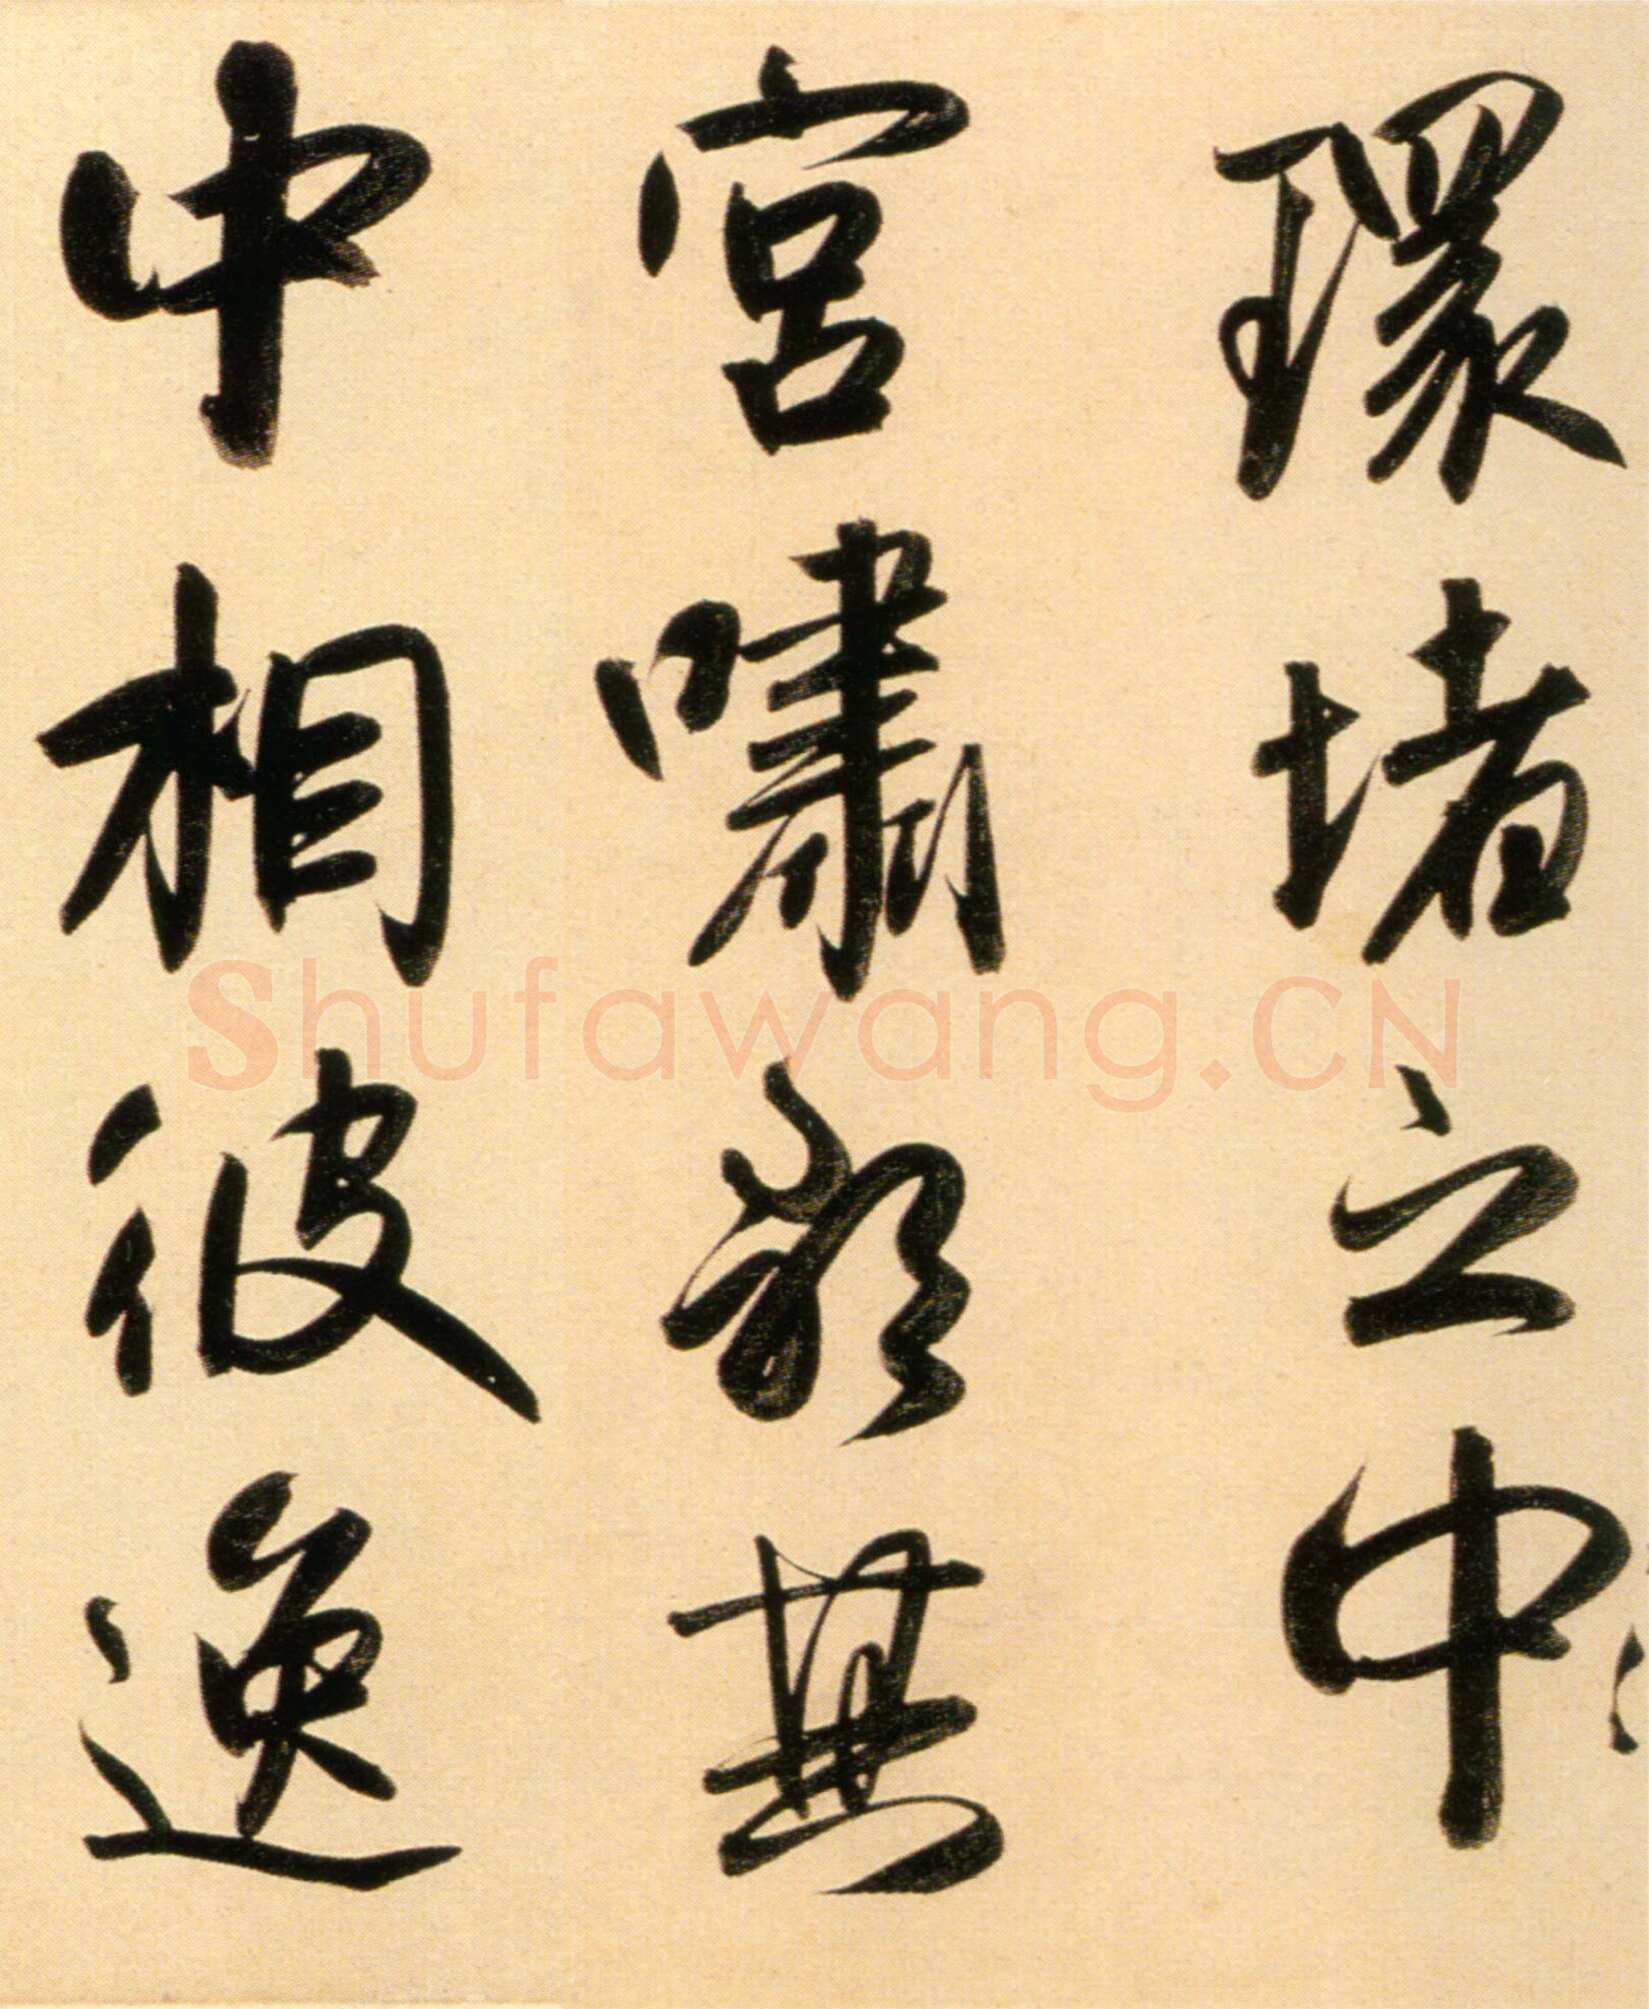 環堵之中
宮嘯無
中相彼逸
Shufawang.CN